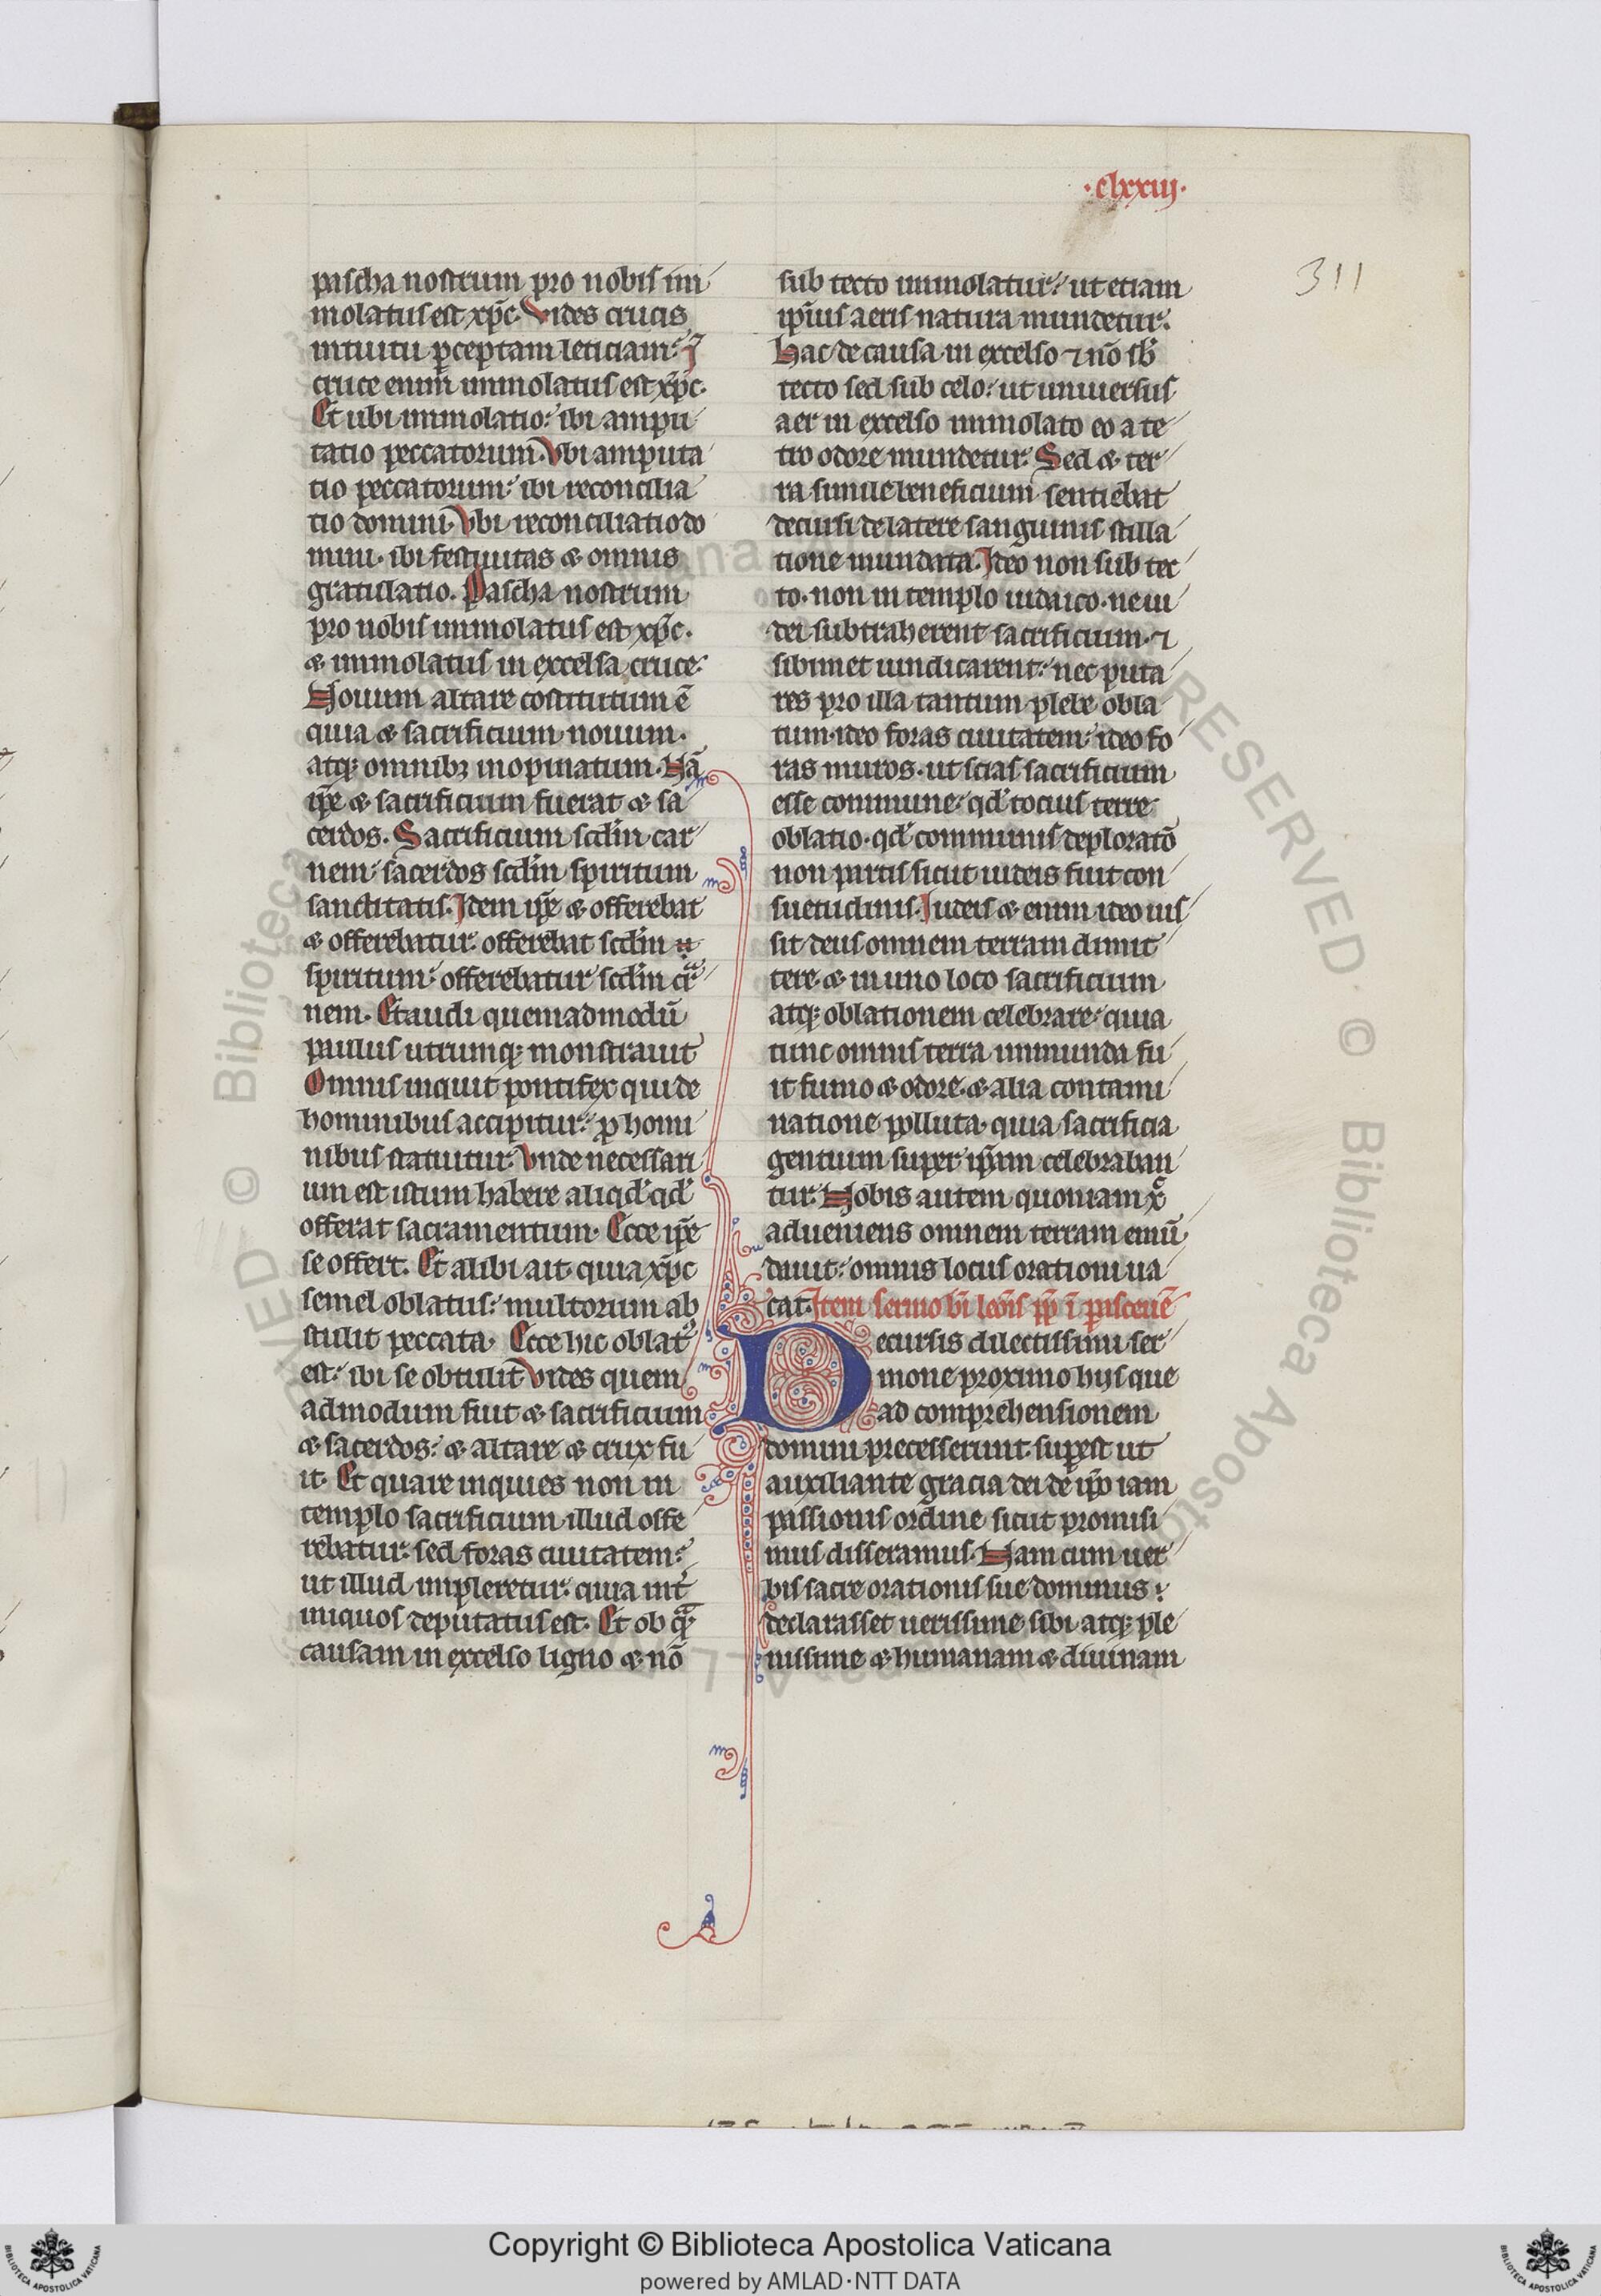 ·clxxiij·
311
pascha nostrum pro nobis im
molatus est xp̄c. Vides crucis
intuitu ꝑceptam leticiam. J
cruce enim immolatus est xp̄c.
Et ubi immolatio: ibi ampu
tatio peccatorum. Vbi amputa
tio peccatorum: ibi reconcilia
tio domini. Vbi reconciliatio do
mini. ibi festiuitas & omnis
gratulatio. Pascha nostrum
pro nobis immolatus est xp̄c.
& immolatus in excelsa cruce.
Nouum altare costitutum ē
quia & sacrificium nouum.
atq; omnibꝫ inopinatum. Nā
ip̄e & sacrificium fuerat & sa
cerdos. Sacrificium scd̄m car
nem: sacerdos scd̄m spiritum
sanctitatis. Idem ip̄e & offerebat
& offerebatur. offerebat scd̄m
spiritum: offerebatur scd̄m cͣr
nem. Et audi quemadmodū
paulus utrumq; monstrauit
Omnis inquit pontifex qui de
hominibus accipitur: ꝓ homi
nibus statuitur. Vnde necessari
um est istum habere aliqd̄ qd̄
offerat sacramentum. Ecce ip̄e
se offert. Et alibi ait. quia xp̄c
semel oblatus: multorum ab
stulit peccata. Ecce hic oblatꝰ
est: ibi se obtulit. Vides quem
admodum fiut & sacrificium
& sacerdos: & altare & crux fu
it. Et quare inquies non in
templo sacrificium illud offe
rebatur. sed foras ciuitatem:
ut illud impleretur. quia int̉
iniquos deputatus est. Et ob qͣ
causam in excelso ligno & nō
sub tecto immolatur: ut etiam
ip̄ius aeris natura mundetur.
Hac de causa in excelso ⁊ nō sb̄
tecto sed sub celo: ut uniuersus
aer in excelso immolato eo a te
tro odore mundetur. Sed & ter
ra simile beneficium sentiebat
decursi de latere sanguinis stilla
tione mundata. Ideo non sub tec
to. non in templo iudaico. ne iu
dei subtraherent sacrificium. ⁊
sibimet uindicarent: nec puta
res pro illa tantum plebe obla
tum. ideo foras ciuitatem: ideo fo
ras muros. ut scias sacrificium
esse commune. qd̄ tocius terre
oblatio. qd̄ communis deploratō
non partis sicut iudeis fuit con
suetudinis. Iudeis & enim ideo ius
sit deus omnem terram dimit
tere. & in uno loco sacrificium
atq; oblationem celebrare. quia
tunc omnis terra immunda fu
it fumo & odore. & alia contami
natione polluta. quia sacrificia
gentium super ip̄am celebraban
tur. Nobis autem quoniam xͨ
adueniens omnem terram emū
dauit: omnis locus orationi ua
cat. Item sermo bi leōis pp̄ ī parasceuē
Decursis dilectissimi ser
mone proximo hijs que
ad comprehensionem
domini precesserunt. suꝑest ut
auxiliante gracia dei de ip̄o iam
passionis ordine sicut promisi
mus disseramus. Nam cum uer
bis sacre orationis sue dominus
declarasset uerissime sibi atq; ple
nissime & humanam & diuinam
Copyright © Biblioteca Apostolica Vaticana
powered by AMLAD·NTT DATA